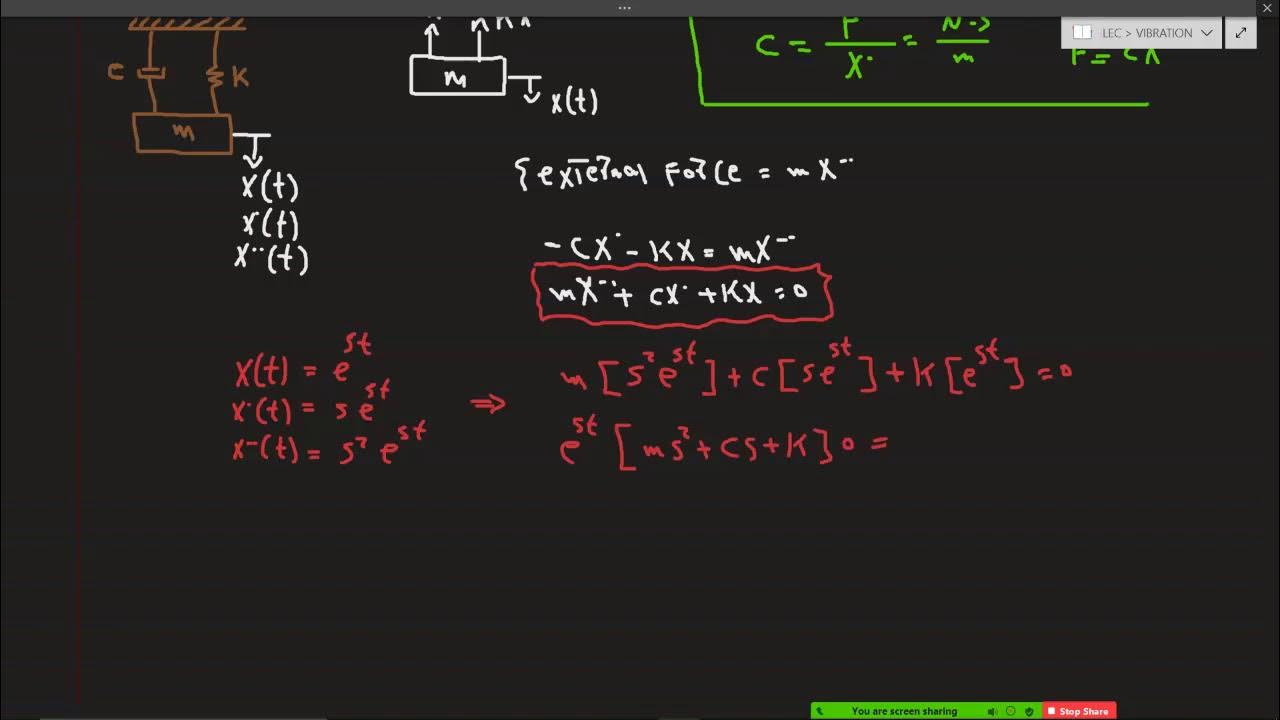 LEC > VIBRATION
C = F / X· = N-S / m
F = CX
C
K
m
KX
m
X(t)
X(t)
X·(t)
X··(t)
{external Force = mX··
-CX· - KX = mX··
mX·· + CX· + KX = 0
X(t) = e^st
X·(t) = se^st
X··(t) = s² e^st
⇒
m[s²e^st] + C[se^st] + K[e^st] = 0
e^st [ms² + Cs + K] 0 =
You are screen sharing
Stop Share